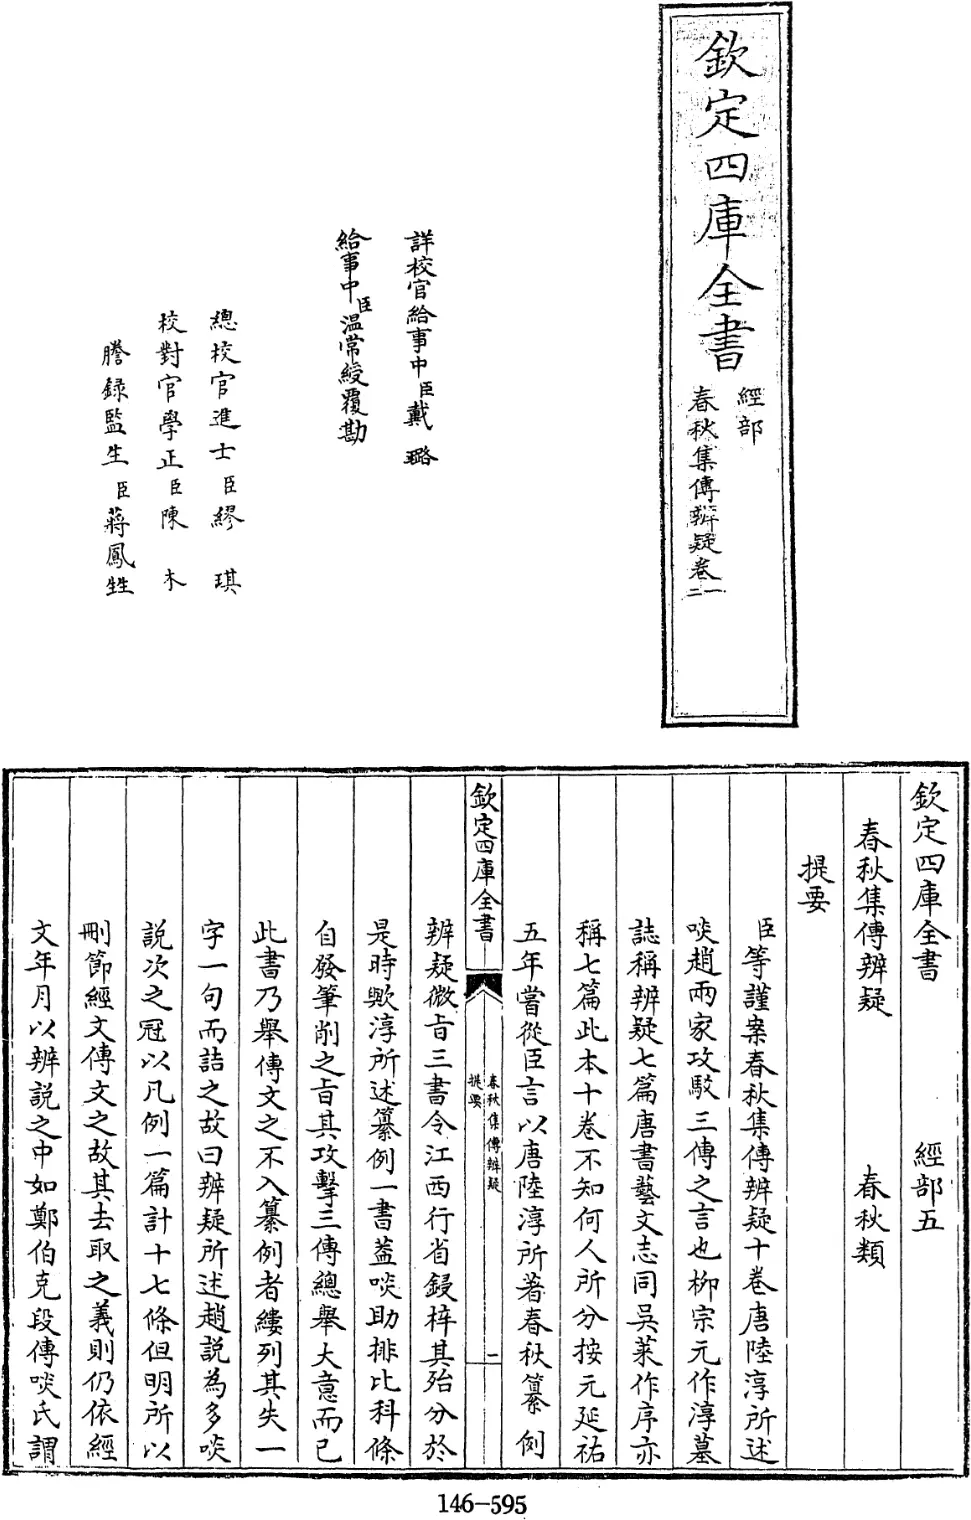 欽定四庫全書
經部
春秋集傳辨疑卷一
二
詳校官給事中臣戴璐
給事中臣温常綬覆勘
總校官進士臣繆琪
校對官學正臣陳木
謄錄監生臣蔣鳳甡
欽定四庫全書 經部五
春秋集傳辨疑 春秋類
提要
臣等謹案春秋集傳辨疑十卷唐陸淳所述
啖趙兩家攻駁三傳之言也柳宗元作淳墓
誌稱辨疑七篇唐書藝文志同吳萊作序亦
稱七篇此本十卷不知何人所分按元延祐
五年嘗從臣言以唐陸淳所著春秋纂例
欽定四庫全書
春秋集傳辨疑
提要
一
辨疑微旨三書令江西行省鋟梓其殆分於
是時歟淳所述纂例一書蓋啖助排比科條
自發筆削之旨其攻擊三傳總舉大意而已
此書乃舉傳文之不入纂例者縷列其失一
字一句而詰之故曰辨疑所述趙說為多啖
說次之冠以凡例一篇計十七條但明所以
刪節經文傳文之故其去取之義則仍依經
文年月以辨說之中如鄭伯克段傳啖氏謂
146-595